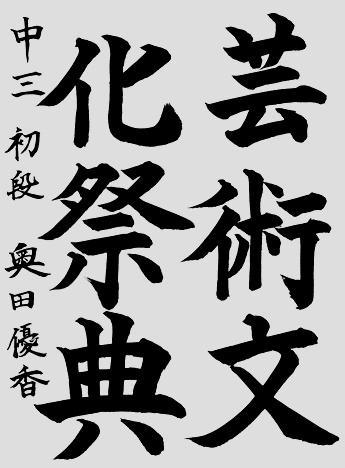 芸術文
化祭典
中三 初段 奥田優香